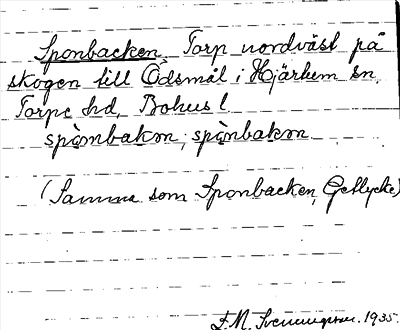 Sponbacken, Torp nordväst på
skogen till Ödsmål i Hjärtum sn,
Torpe hd, Bohus l
spǫ̀nbakan, spǫ̀nbakən
(Samma som Sponbacken, Getlycke)
F.M. Svenungsson. 1935.